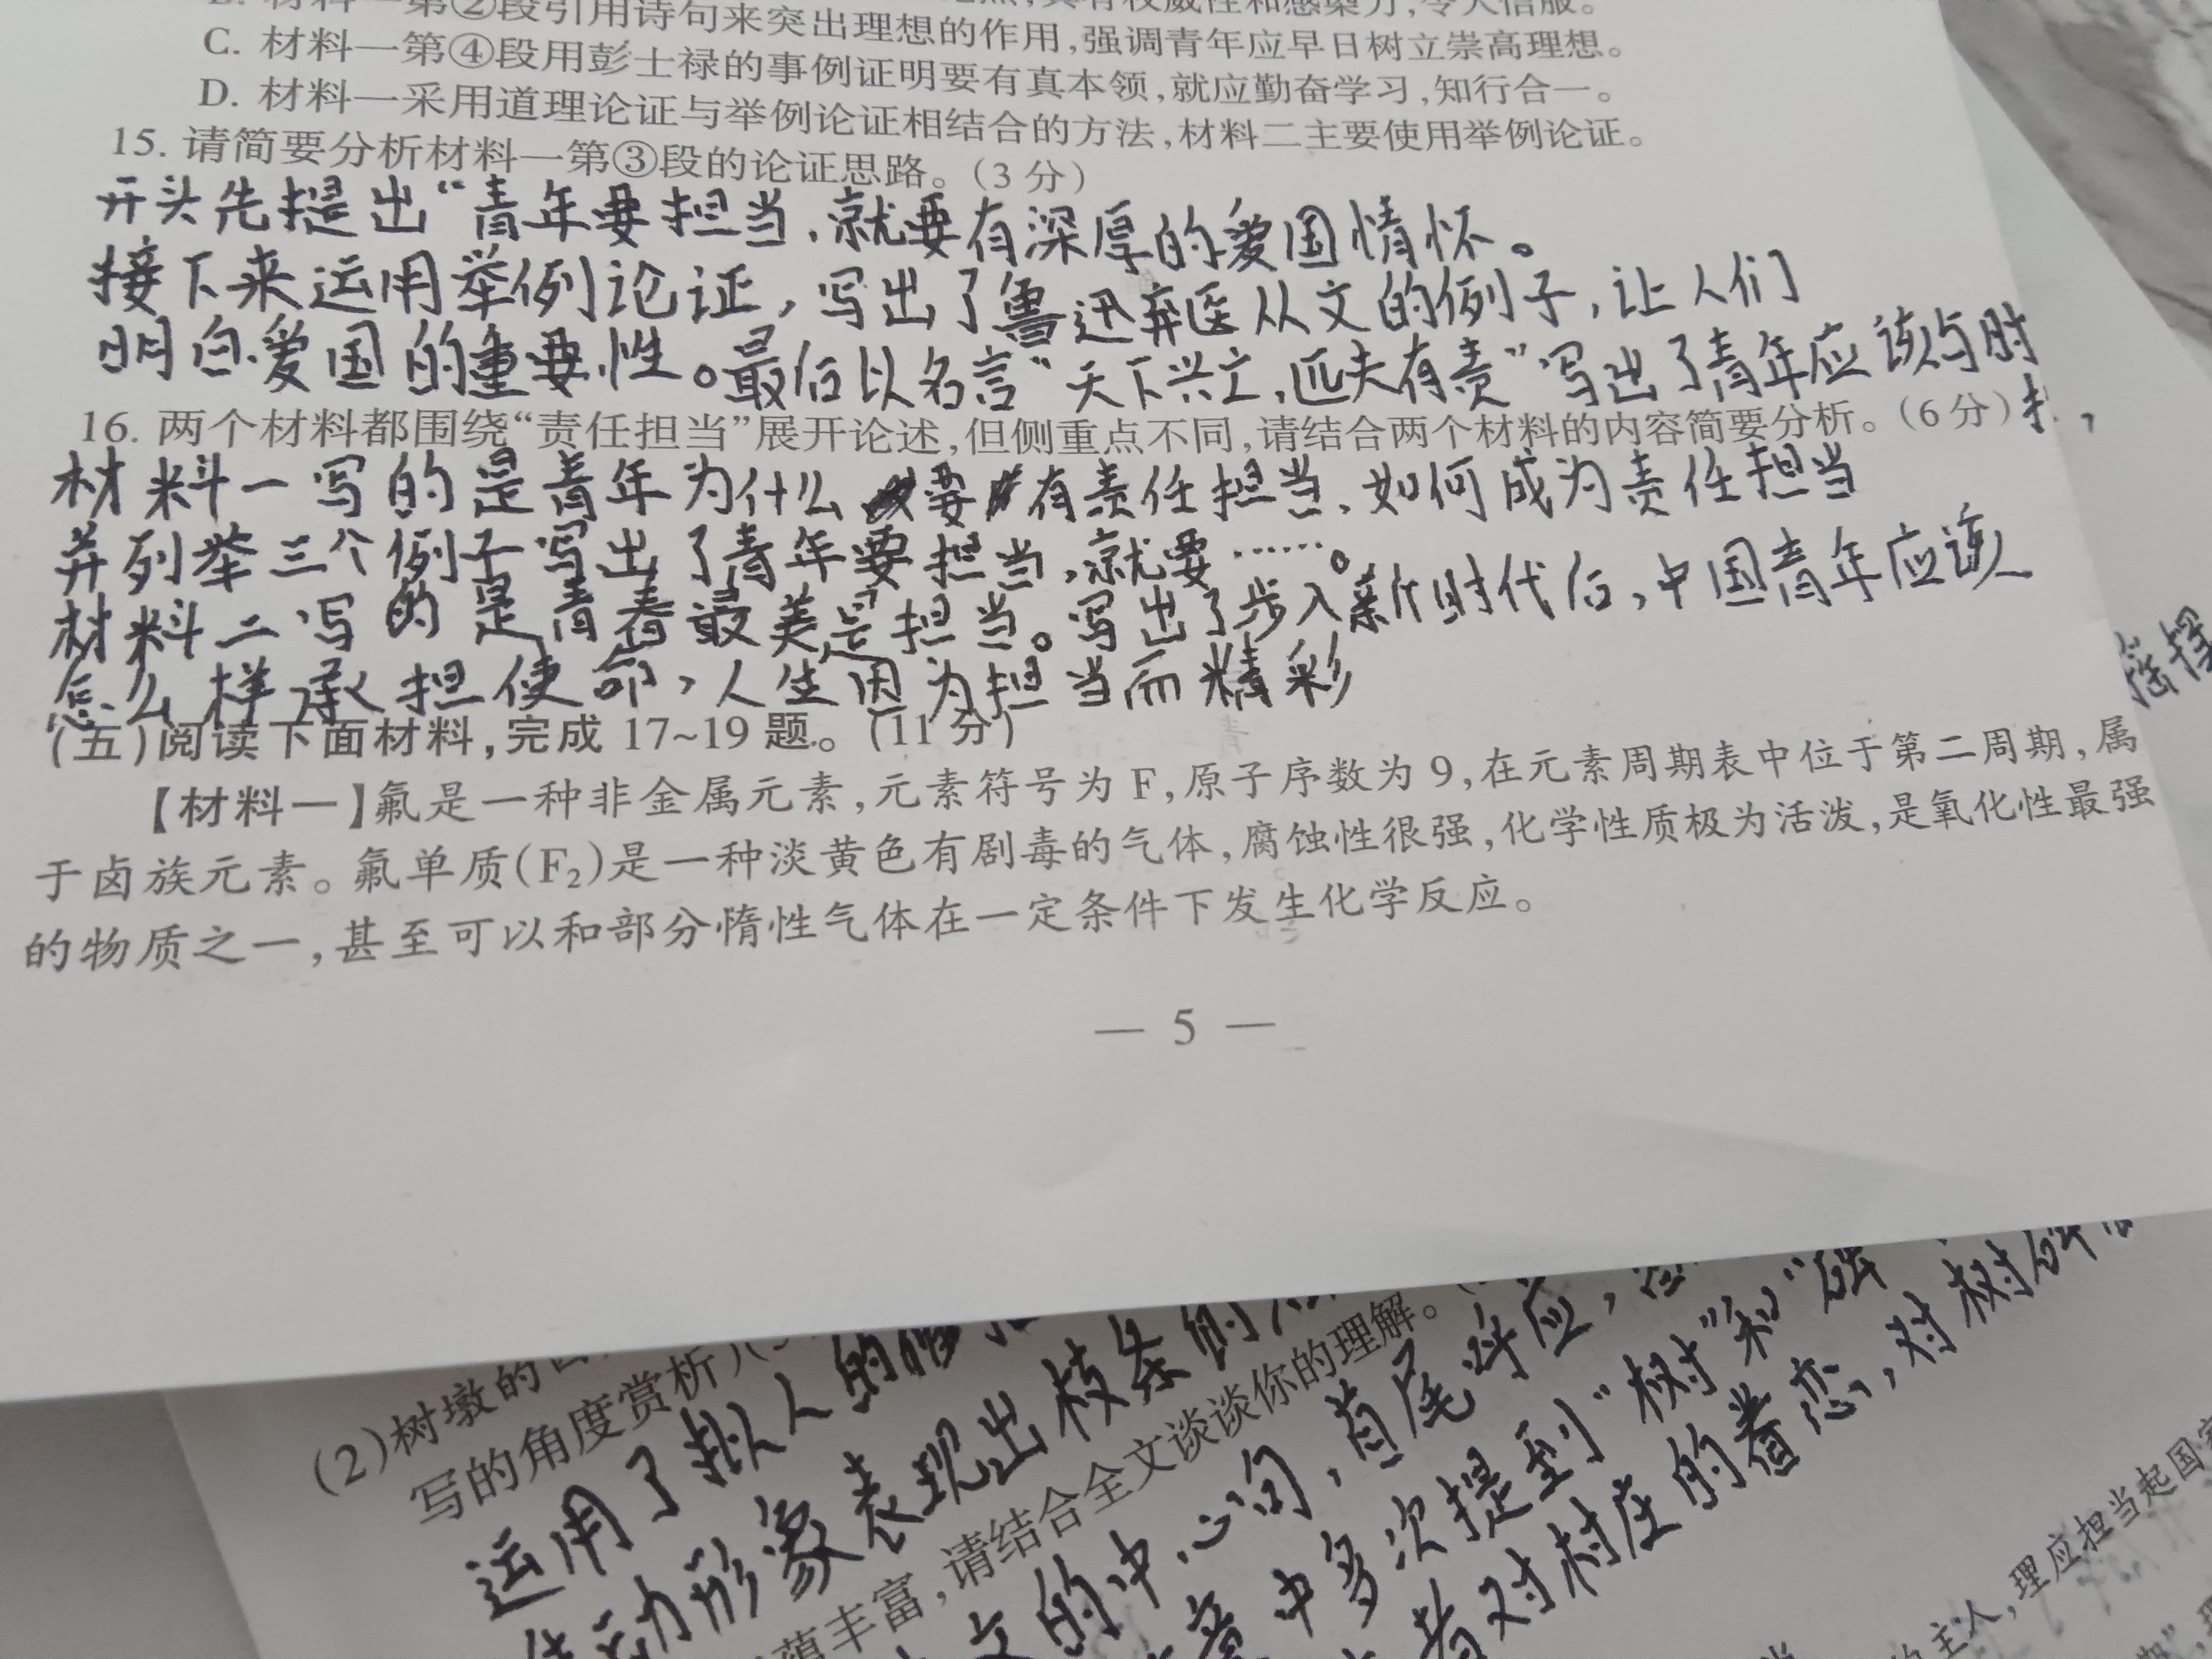 材料一第②段引用诗句来突出理想的作用,强调青年应早日树立崇高理想。
C. 材料一第④段用彭士禄的事例证明要有真本领,就应勤奋学习,知行合一。
D. 材料一采用道理论证与举例论证相结合的方法,材料二主要使用举例论证。
15. 请简要分析材料一第③段的论证思路。(3分)
开头先提出“青年要担当,就要有深厚的爱国情怀。
接下来运用举例论证,写出了鲁迅弃医从文的例子,让人们
明白爱国的重要性。最后以名言“天下兴亡,匹夫有责”写出了青年应该与时
16. 两个材料都围绕“责任担当”展开论述,但侧重点不同,请结合两个材料的内容简要分析。(6分)
材料一写的是青年为什么要有责任担当,如何成为责任担当
并列举三个例子写出了青年要担当,就要……。
材料二写的是青春最美是担当。写出了步入新时代后,中国青年应该
怎么样承担使命,人生因为担当而精彩
(五)阅读下面材料,完成17~19题。(11分)
【材料一】氟是一种非金属元素,元素符号为F,原子序数为9,在元素周期表中位于第二周期,属
于卤族元素。氟单质(F₂)是一种淡黄色有剧毒的气体,腐蚀性很强,化学性质极为活泼,是氧化性最强
的物质之一,甚至可以和部分惰性气体在一定条件下发生化学反应。
— 5 —
(2)树墩的
写的角度赏析)
运用了拟人的修
动形象表现出枝条的
丰富,请结合全文谈谈你的理解。
文的中心句,首尾呼应,
章中多次提到“树”和“
者对村庄的眷恋,对树
的主人,理应担当起国家